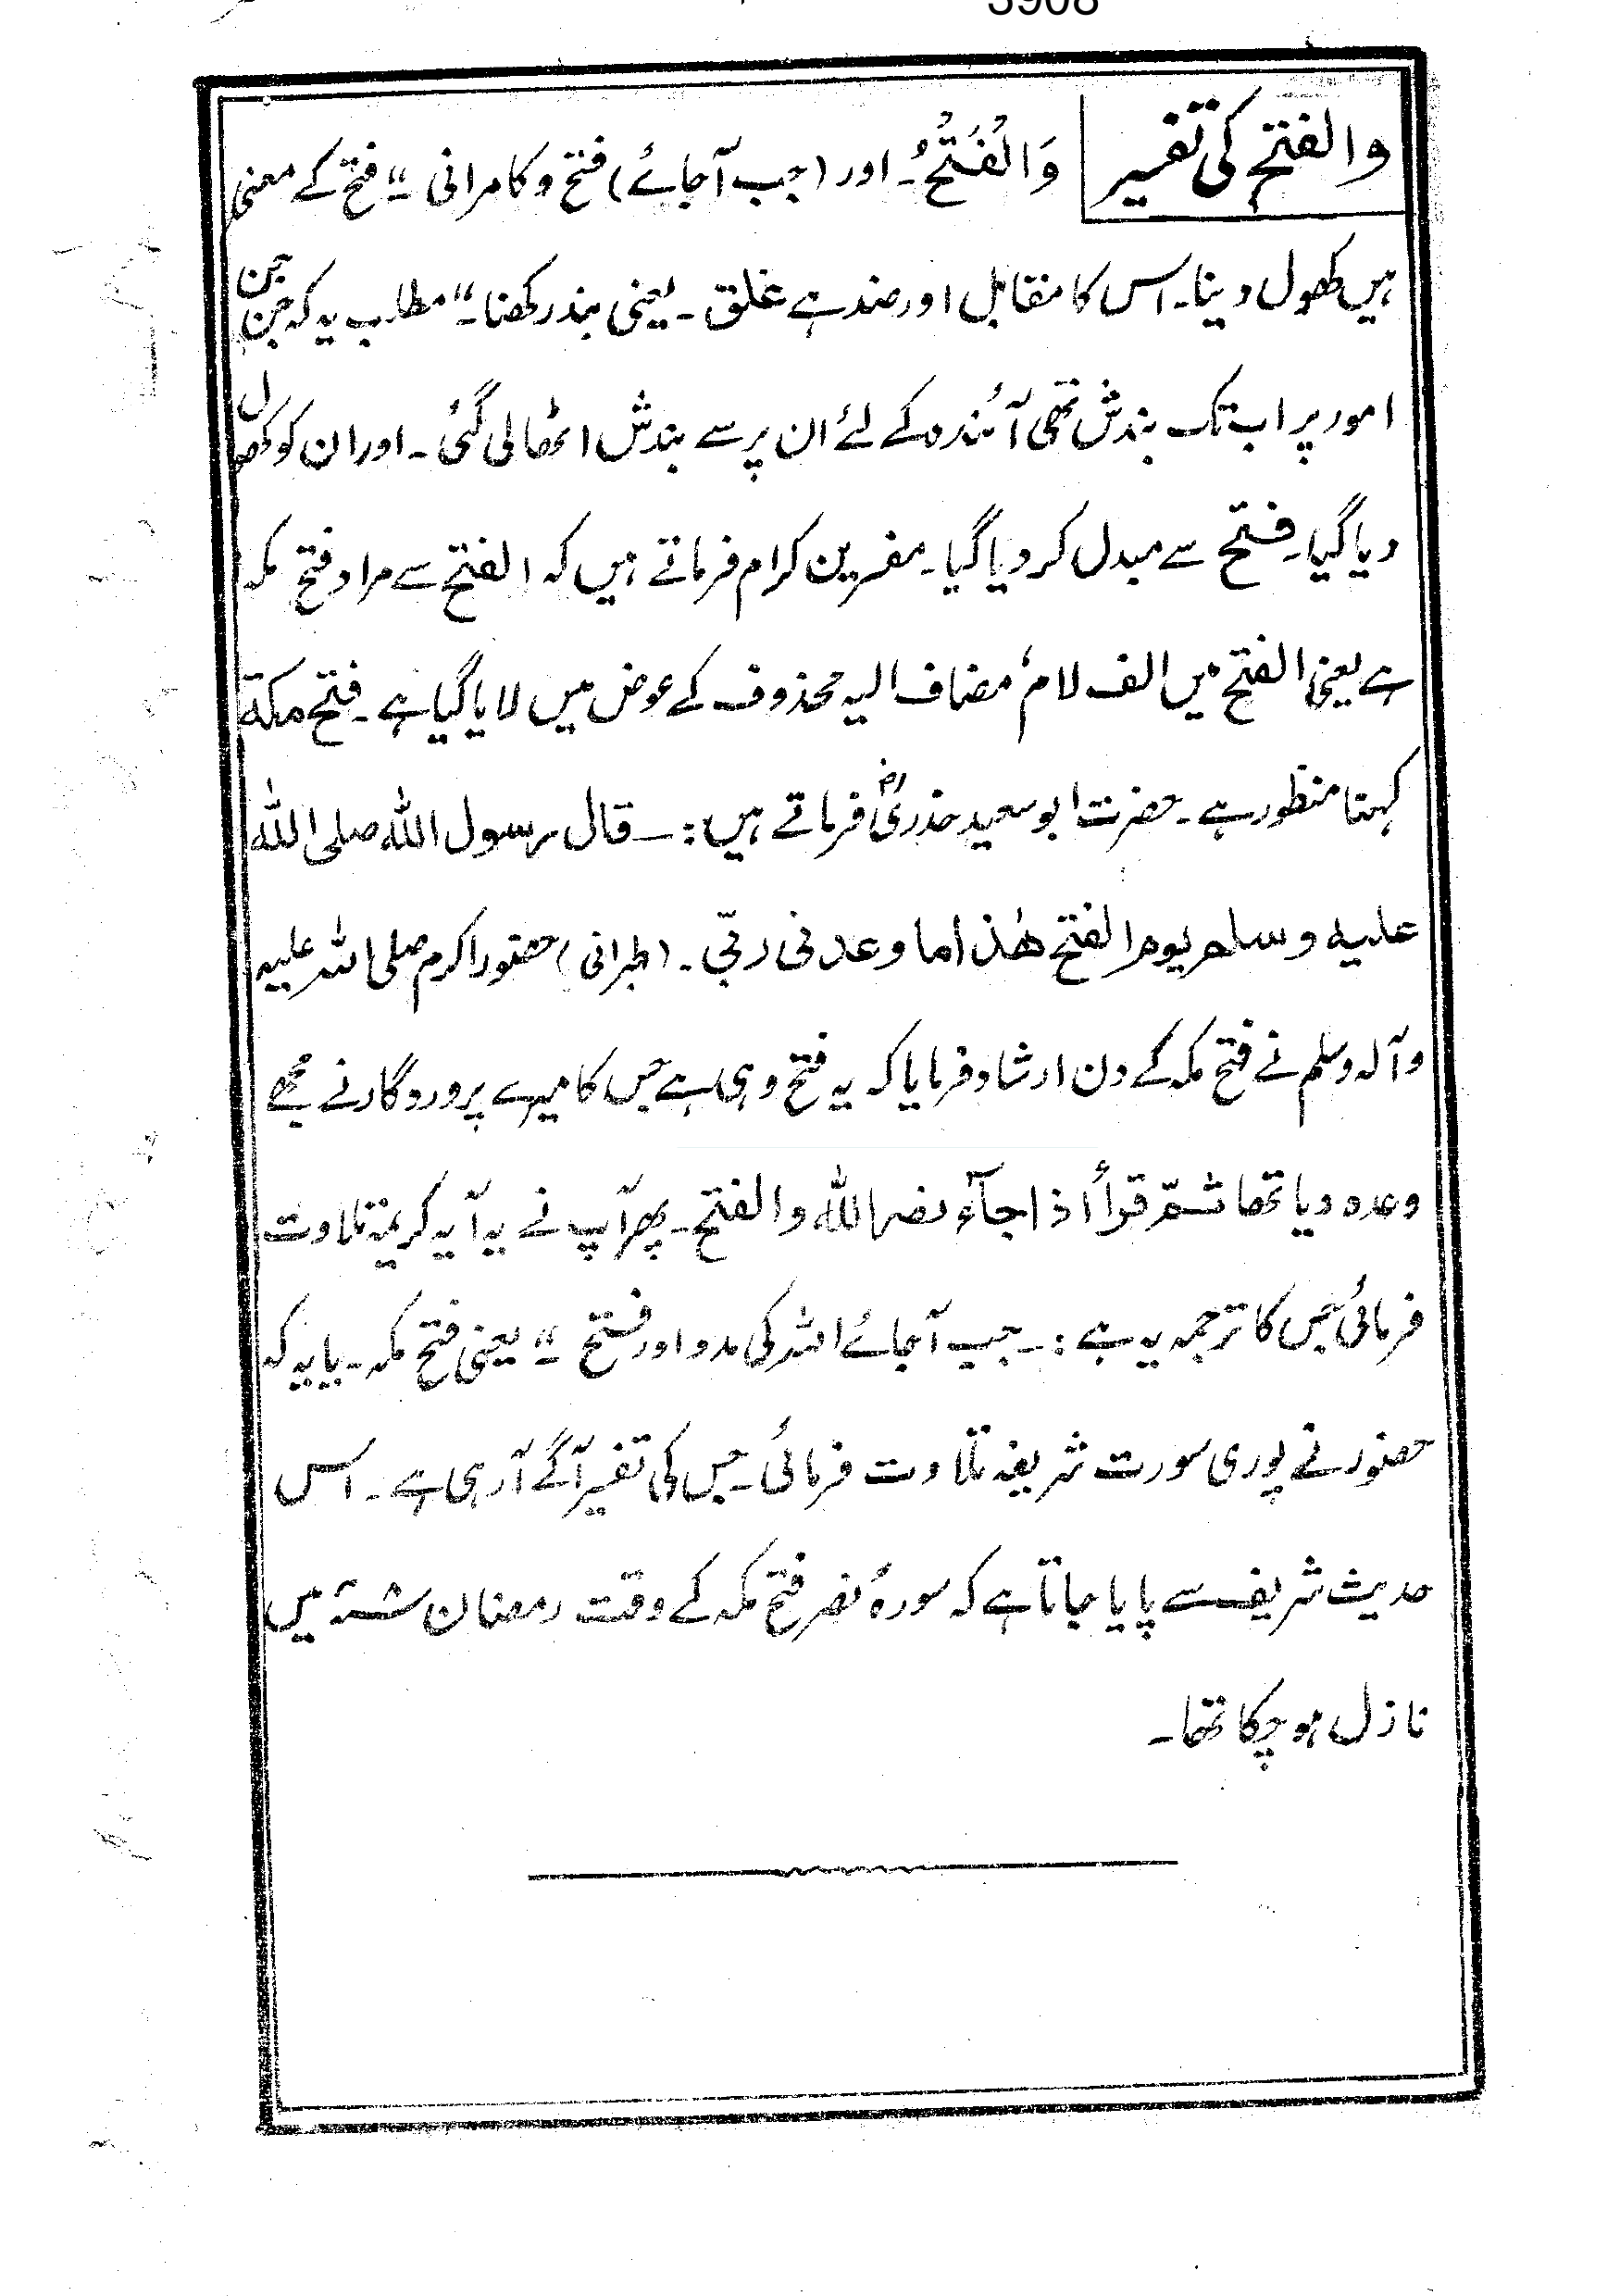 والفتح کی تفسیر
وَالْفَتْحُ۔ اور (جب آجائے) فتح و کامرانی ۔“ فتح کے معنی
ہیں کھول دینا۔ اس کا مقابل اور ضد ہے غلق ۔ یعنی بند رکھنا۔“ مطلب یہ کہ جن جن
امور پر اب تک بندش تھی آئندہ کے لئے ان پر سے بندش اٹھالی گئی ۔ اور ان کو کھول
دیا گیا۔ فتح سے مبدل کر دیا گیا۔ مفسرین کرام فرماتے ہیں کہ الفتح سے مراد فتح مکہ
ہے یعنی الفتح میں الف لام مضاف الیہ محذوف کے عوض میں لایا گیا ہے ۔ فتح مکة
کہنا منظور ہے ۔ حضرت ابو سعید خدریؓ فرماتے ہیں :۔ قال رسول اللہ صلی اللہ
علیه وسلم یوم الفتح هٰذا ما وعدنی ربّی ۔ (طبرانی) حضور اکرم صلی اللہ علیہ
وآلہ وسلم نے فتح مکہ کے دن ارشاد فرمایا کہ یہ فتح وہی ہے جس کا میرے پروردگار نے مجھے
وعدہ دیا تھا ثمّ قرأ اذا جآء نصر اللہ والفتح ۔ پھر آپ نے یہ آیہ کریمہ تلاوت
فرمائی جس کا ترجمہ یہ ہے :۔ جب آجائے اللہ کی مدد اور فتح ۔“ یعنی فتح مکہ ۔ یا یہ کہ
حضور نے پوری سورت شریفہ تلاوت فرمائی ۔ جس کی تفسیر آگے آرہی ہے ۔ اس
حدیث شریف سے پایا جاتا ہے کہ سورہٗ نصر فتح مکہ کے وقت رمضان میں
نازل ہو چکا تھا ۔